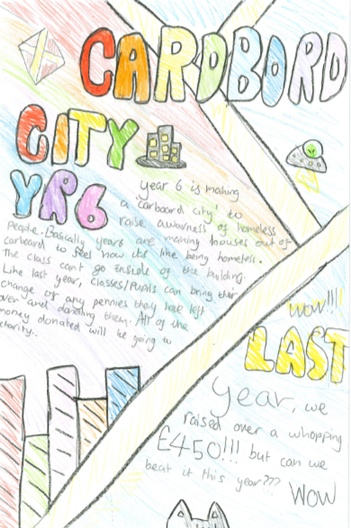 CARDBORD
CITY
YR6
Year 6 is making
a 'carboard city' to
raise awarness of homeless
people. Basically years are making houses out of
carboard to feel how its like being homeless.
The class can't go enside of the building.
Like last year, classes/Pupils can bring their
change or any pennies they have left
over and donating them. All of the
money donated will be going to
charity..
WOW!!!
LAST
Year, we
raised over a whopping
£450!!! but can we
beat it this year???
WOW